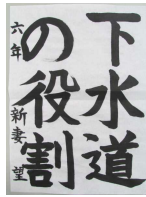 下水道
の役割
六年 新妻 望